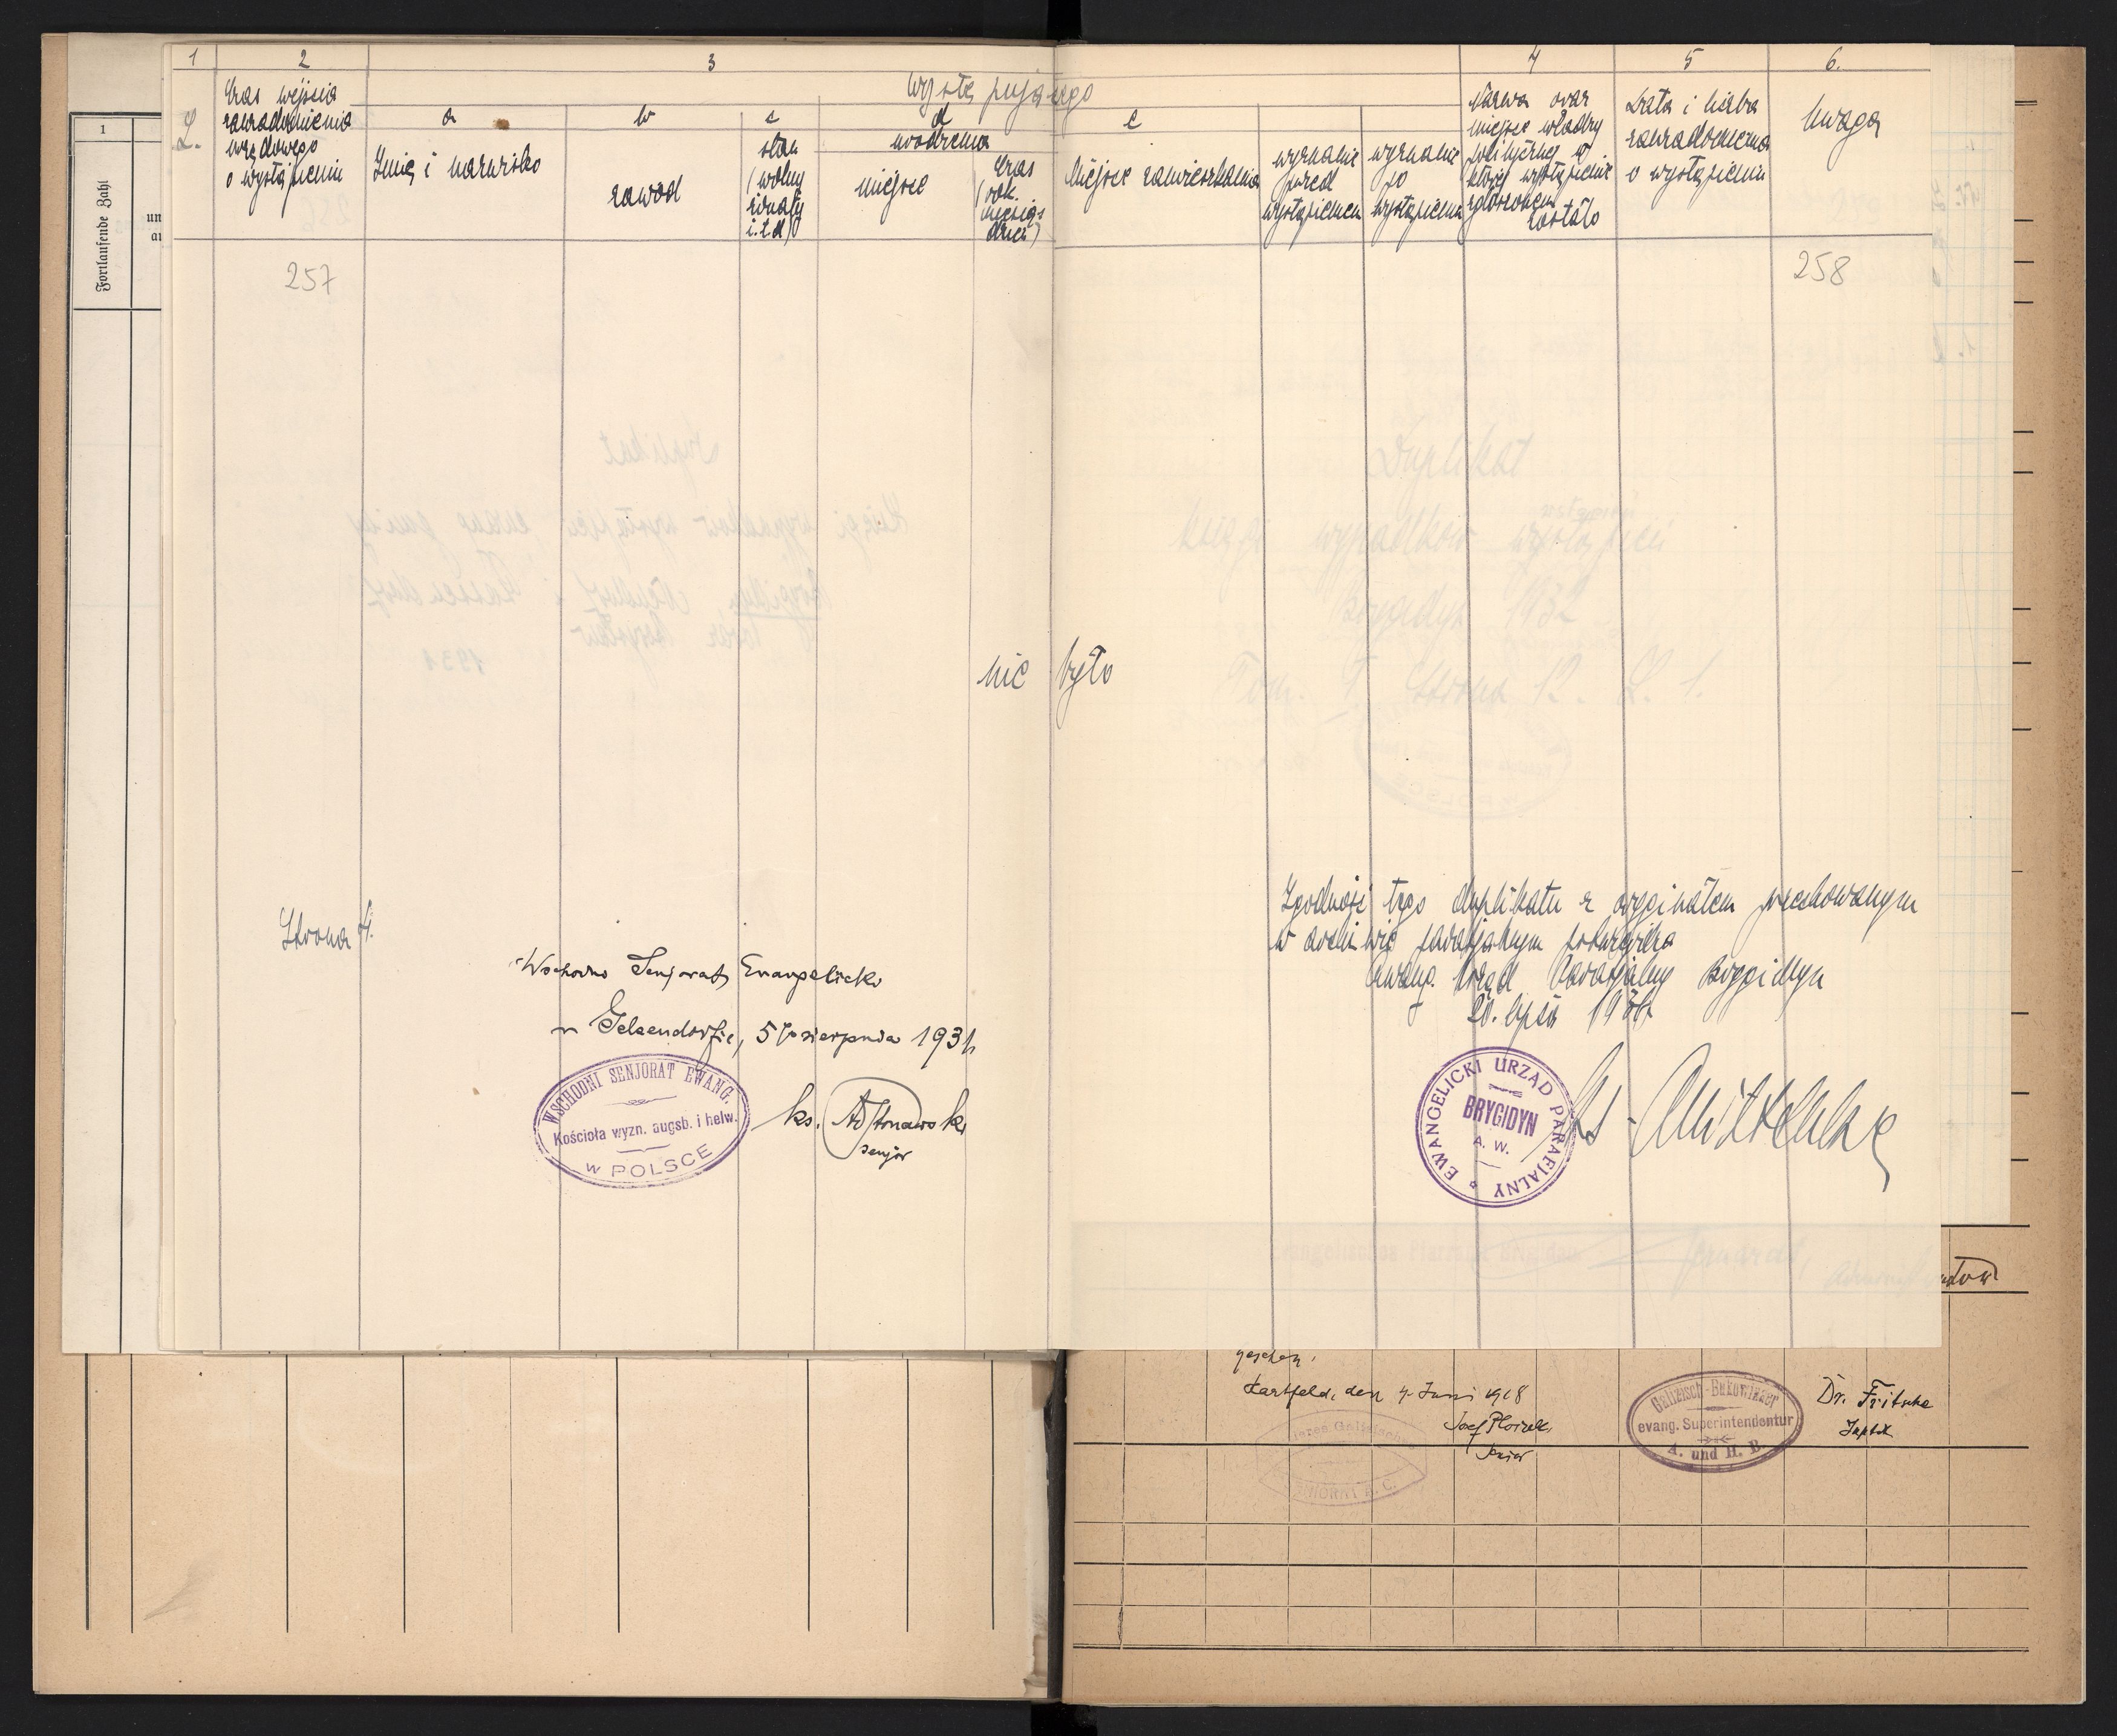 1 2 3 4 5 6.
występującego
L.
Czas wejścia
zawiadomienia
urzędowego
o wystąpieniu
a
Imię i nazwisko
b
zawód
c
stan
(wolny
żonaty
i.t.d)
d
urodzenia
miejsce
Czas
(rok.
miesiąc
dzień)
e
Miejsce zamieszkania
wyznanie
przed
wystąpieniem
wyznanie
po
wystąpieniu
Nazwa oraz
miejsce władzy
politycznej w
której wystąpienie
zgłoszonem
zostało
Data i liczba
zawiadomienia
o wystąpieniu
Uwaga
257
258
nie było
Strona 4.
Wschodni Senjorat Ewangelicki
w Gelsendorfie, 5 sierpnia 1931
WSCHODNI SENJORAT EWANG.
Kościoła wyzn. augsb. i helw.
w POLSCE
ks.
senjor
Zgodność tego duplikatu z oryginałem przechowanym
w archiwie parafjalnym potwierdza
Ewang. Urząd Parafjalny Brygidyn
20. lipca
EWANGELICKI URZĄD PARAFJALNY
BRYGIDYN
A. W.
ks.
1
Fortlaufende Zahl
Duplikat
księgi wypadków wystąpień
Brygidyn 1932
Tom. I Strona 12. L. 1.
Evangelisches Pfarramt Brigidau
Hartfeld, den 4. Juni 1918
Senior
Galizisch-Bukowinaer
evang. Superintendentur
A. und H. B.
Dr. Fritsche
Suptdt.